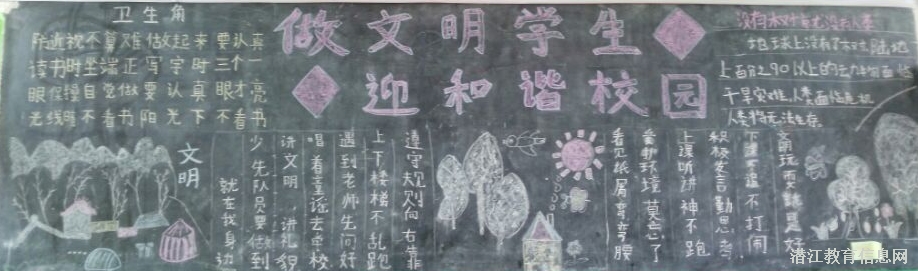 卫生角
防近视不算难做起来要认真
读书时坐端正写字时三个一
眼保操自觉做要认真眼才亮
光线暗不看书阳光下不看书
做文明学生
迎和谐校园
没有树木就没有人类
地球上没有了树木陆地
上百分之90以上的
干旱灾难，人类面临危机
人类将无法生存。
文明
遵守规则向右靠
上下楼梯不乱跑
遇到老师生问好
唱着童谣去学校
讲文明 讲礼貌
少先队员要做到
就在我身边
下课不追不打闹
积极发言勤思考
上课听讲神不跑
爱护环境莫忘了
看见纸屑弯弯腰
潜江教育信息网